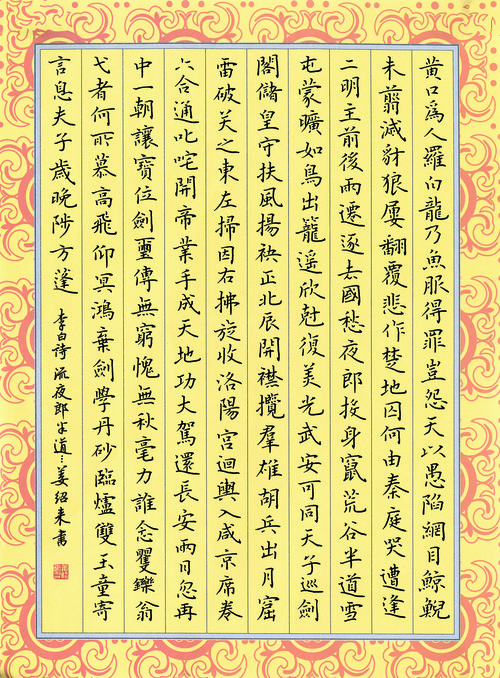 黃口為人羅白龍乃魚服得罪豈怨天以愚陷網目鯨鯢
未翦滅豺狼屢翻覆悲作楚地囚何由秦庭哭遭逢
二明主前後兩遷逐去國愁夜郎投身竄荒谷半道雪
屯蒙曠如鳥出籠遥欣尅復美光武安可同天子巡劍
閣儲皇守扶風揚袂正北辰開襟攬羣雄胡兵出月窟
雷破关之東左掃因右拂旋收洛陽宮迴輿入咸京席卷
六合通叱咤開帝業手成天地功大駕還長安兩日忽再
中一朝讓寶位劍璽傳無窮愧無秋毫力誰念矍鑠翁
弋者何所慕高飛仰冥鴻棄劍學丹砂臨爐雙玉童寄
言息夫子歲晚陟方蓬 李白詩流夜郎半道…姜紹来書